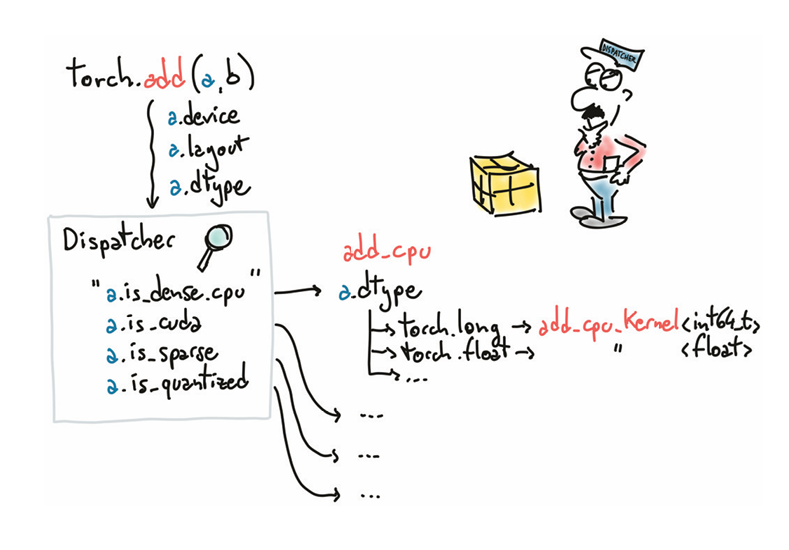 torch.add(a,b)
a.device
a.layout
a.dtype
DISPATCHER
Dispatcher
"a.is_dense.cpu"
a.is_cuda
a.is_sparse
a.is_quantized
add_cpu
a.dtype
torch.long → add_cpu_Kernel<int64_t>
torch.float → " <float>
...
...
...
...